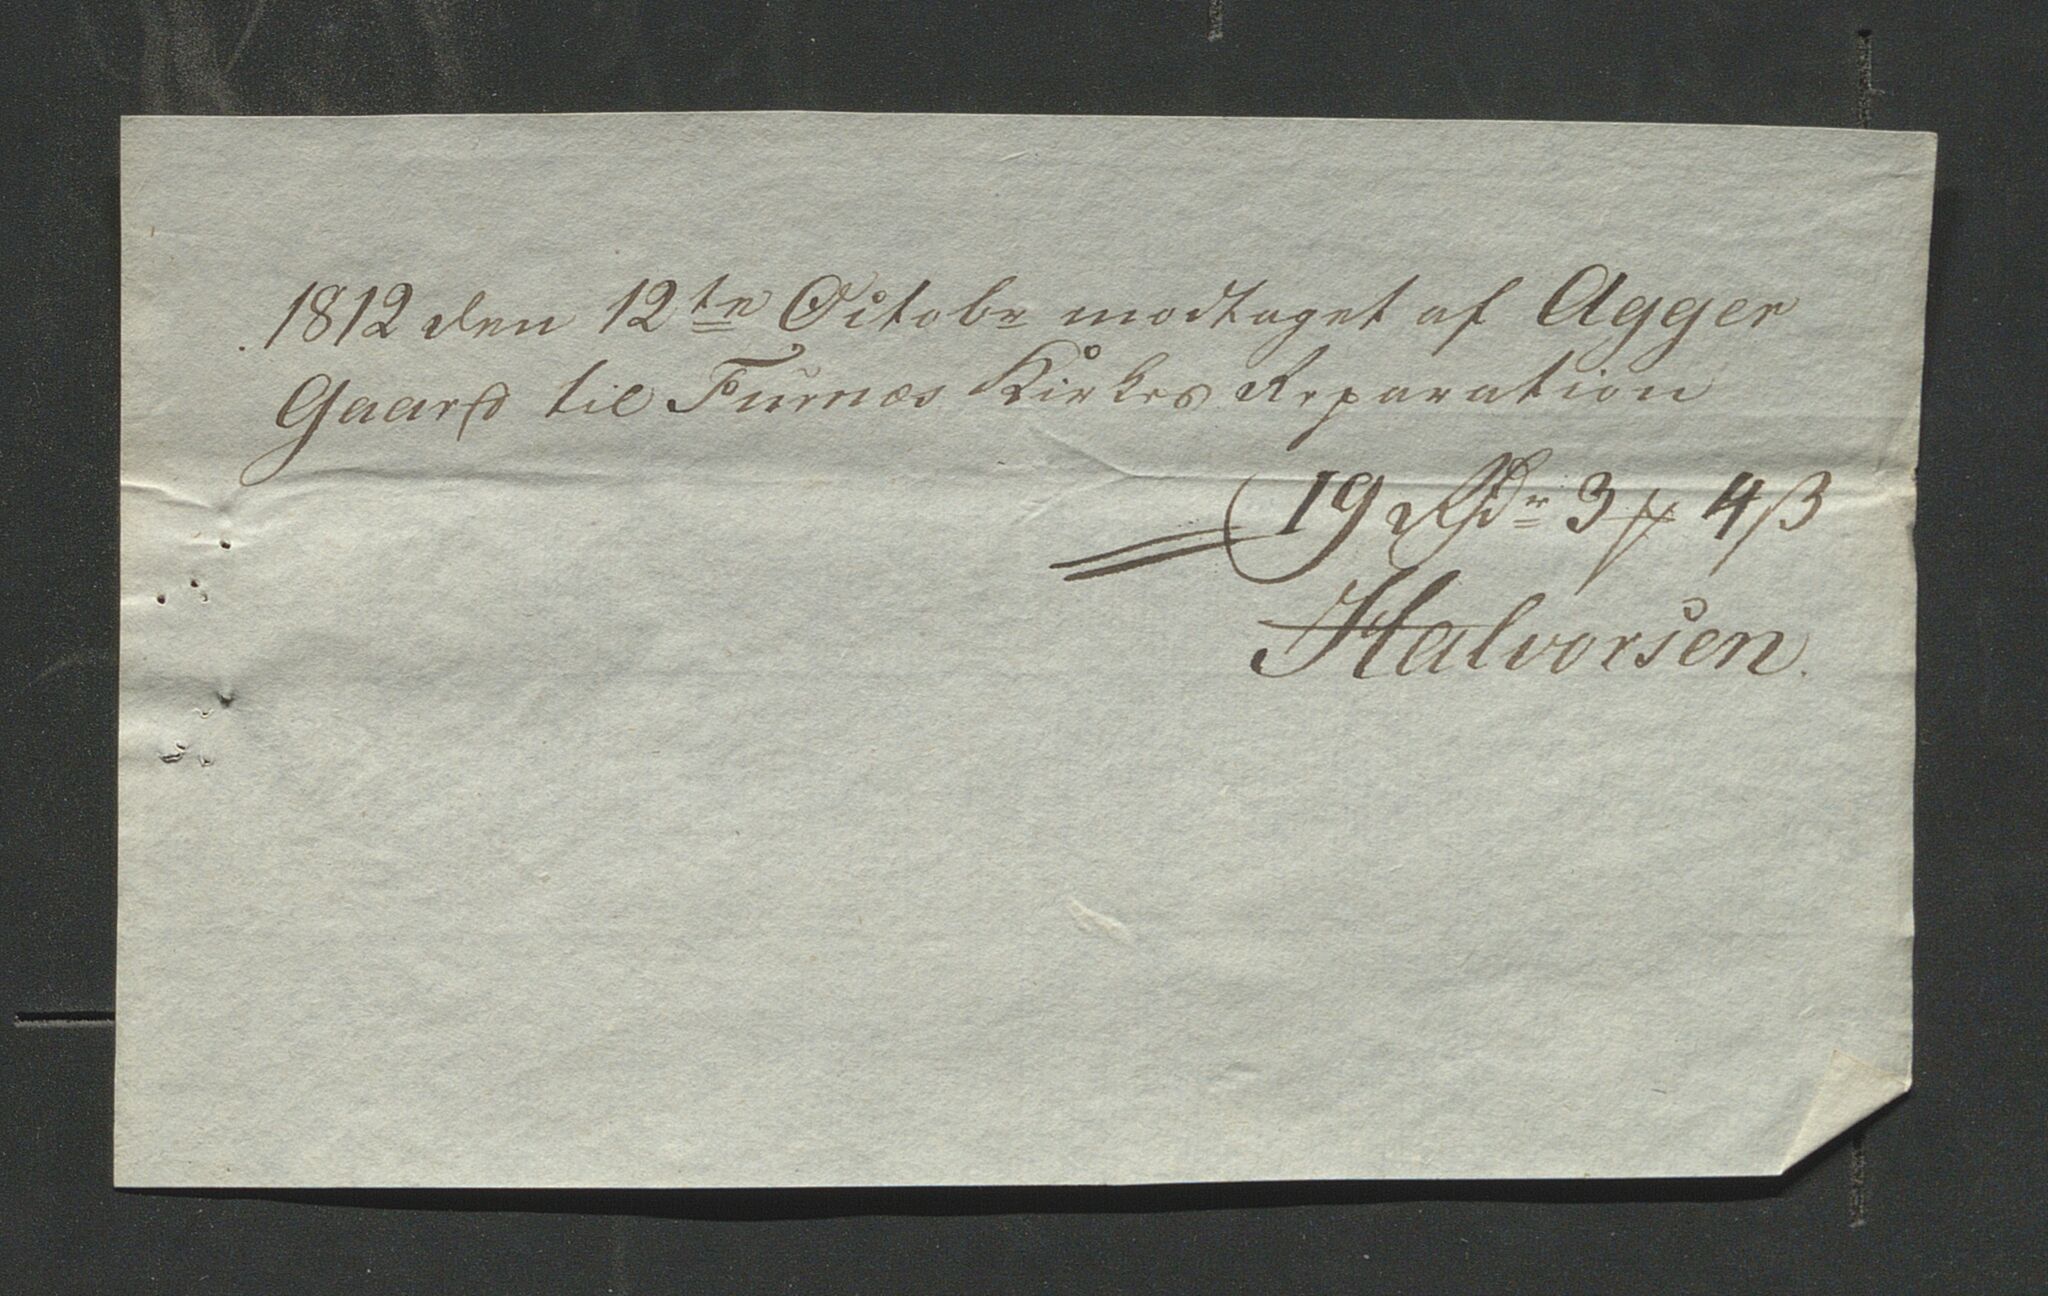 1812 den 12te Octobr modtaget af Agger
Gaard til Furnæs Kirkes Reparation
19 Rdr 3 ß 4 ß
Halvorsen.